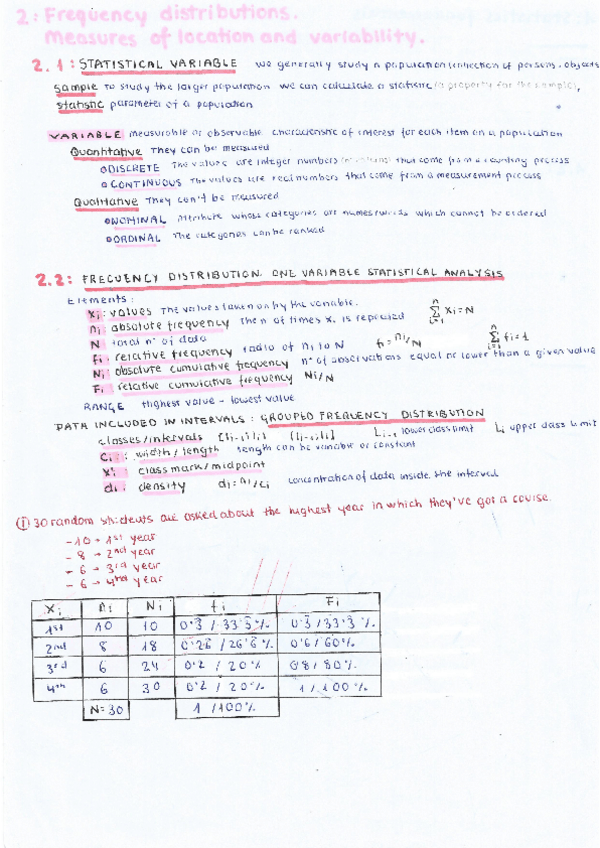 2: Frequency distributions.
Measures of location and variability.
2.1: STATISTICAL VARIABLE we generally study a population (collection of persons, objects
sample to study the larger population we can calculate a statistic (a property for the sample),
statistic parameter of a population
VARIABLE measurable or observable characteristic of interest for each item on a population
Quantitative They can be measured
DISCRETE The values are integer numbers that come from a counting process
CONTINUOUS The values are real numbers that come from a measurement process
Qualitative They can't be measured
NOMINAL Attribute whose categories are names/words which cannot be ordered
ORDINAL The categories can be ranked
2.2: FRECUENCY DISTRIBUTION. ONE VARIABLE STATISTICAL ANALYSIS
Elements:
Xi: values The values taken on by the variable.
ni absolute frequency The n of times xi is repeated n Σ i=1 xi = N
N total nº of data
fi: relative frequency ratio of ni to N fi = ni/N n Σ i=1 fi = 1
Ni absolute cumulative frequency nº of observations equal or lower than a given value
Fi relative cumulative frequency Ni/N
RANGE Highest value - lowest value
DATA INCLUDED IN INTERVALS: GROUPED FREQUENCY DISTRIBUTION
classes/intervals [Li-1; Li) (Li-1; Li] Li-1 lower class limit Li upper class limit
Ci: width/length length can be variable or constant
Xi: class mark/midpoint
di: density di = ni/ci concentration of data inside the interval
① 30 random students are asked about the highest year in which they've got a course.
- 10 → 1st year
- 8 → 2nd year
- 6 → 3rd year
- 6 → 4th year
Xi ni Ni fi Fi
1st 10 10 0'3̂ / 33'3̂ % 0'3̂ / 33'3̂ %
2nd 8 18 0'26̂ / 26'6̂ % 0'6 / 60%
3rd 6 24 0'2 / 20% 0'8 / 80%
4th 6 30 0'2 / 20% 1 / 100%
N=30 1 / 100%